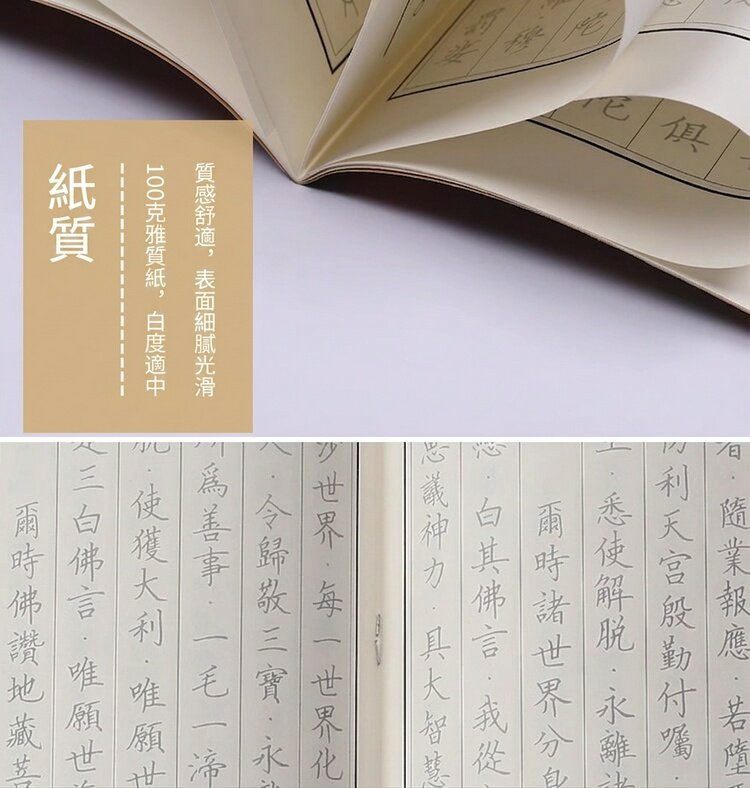 紙質
100克雅質紙，白度適中
質感舒適，表面細膩光滑
陀
穆
俱
陀
隨業報應．若墮
利天宮殷勤付囑．
悉使解脫．永離諸
爾時諸世界分身
．白其佛言．我從
議神力．具大智慧
世界．每一世界化
．令歸敬三寶．永
爲善事．一毛一渧
．使獲大利．唯願世
三白佛言．唯願世
爾時佛讚地藏菩